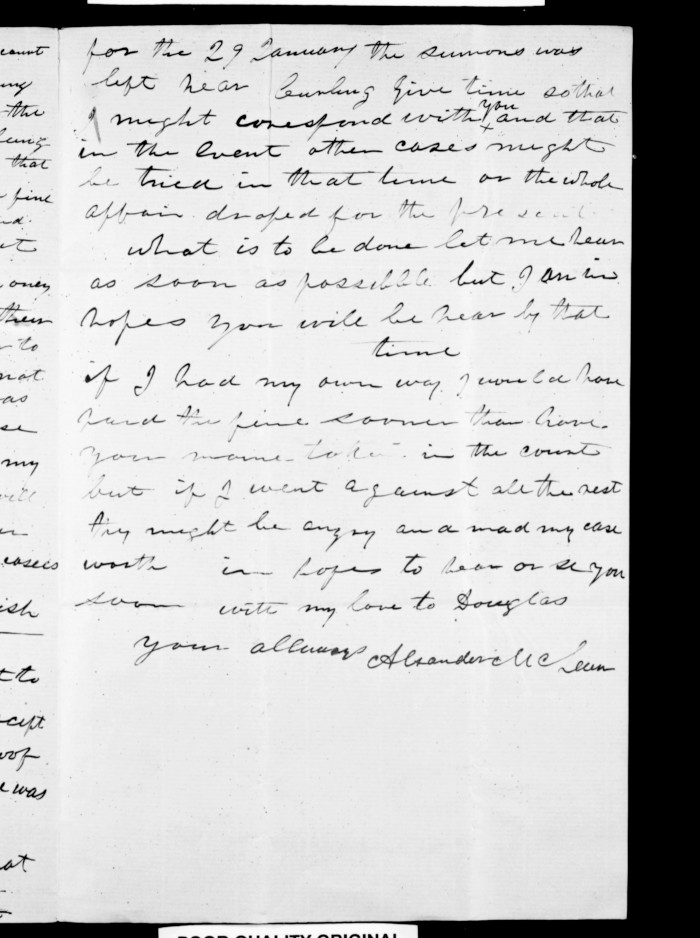 for the 29 January the sumons was
left hear Curling give time so that
I might corespond with you and that
in the Event other cases might
be tried in that time or the whole
affair droped for the present
what is to be done let me hear
as soon as possible but I am in
hopes you will be hear by that
time
if I had my own way I would have
paid the fine sooner than have
your name taken in the court
but if I went against all the rest
they might be angry and mad my case
worth in hopes to hear or se you
soon with my love to Douglas
your allways Alexander McLean
count
the
that
fine
oney
their
to
not
as
se
my
will
casees
ish
to
cept
oof
was
at
POOR QUALITY ORIGINAL